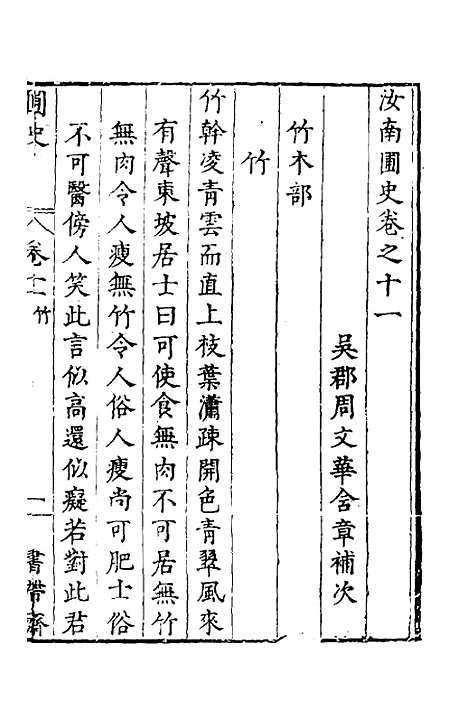 汝南圃史卷之十一
吳郡周文華含章補次
竹木部
竹
竹幹凌青雲而直上枝葉瀟疎開色青翠風來
有聲東坡居士曰可使食無肉不可居無竹
無肉令人瘦無竹令人俗人瘦尚可肥士俗
不可醫傍人笑此言似高還似癡若對此君
圃史
卷十一 竹
一
書帶齋